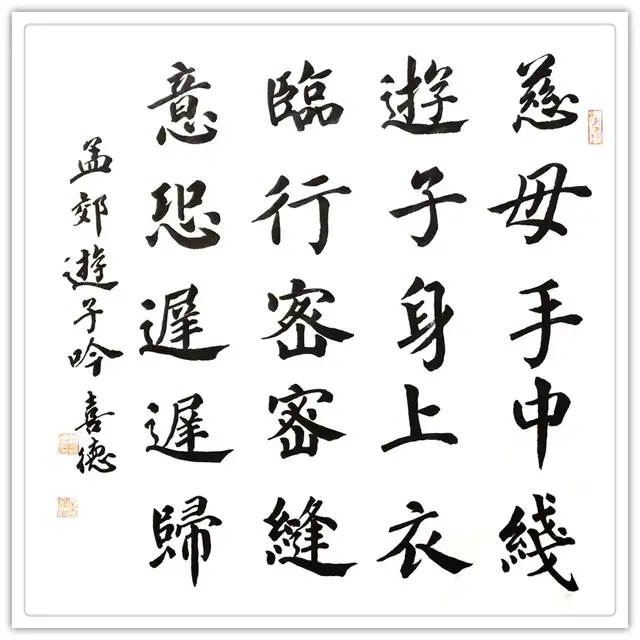 慈母手中綫
遊子身上衣
臨行密密縫
意恐遲遲歸
孟郊遊子吟 喜德